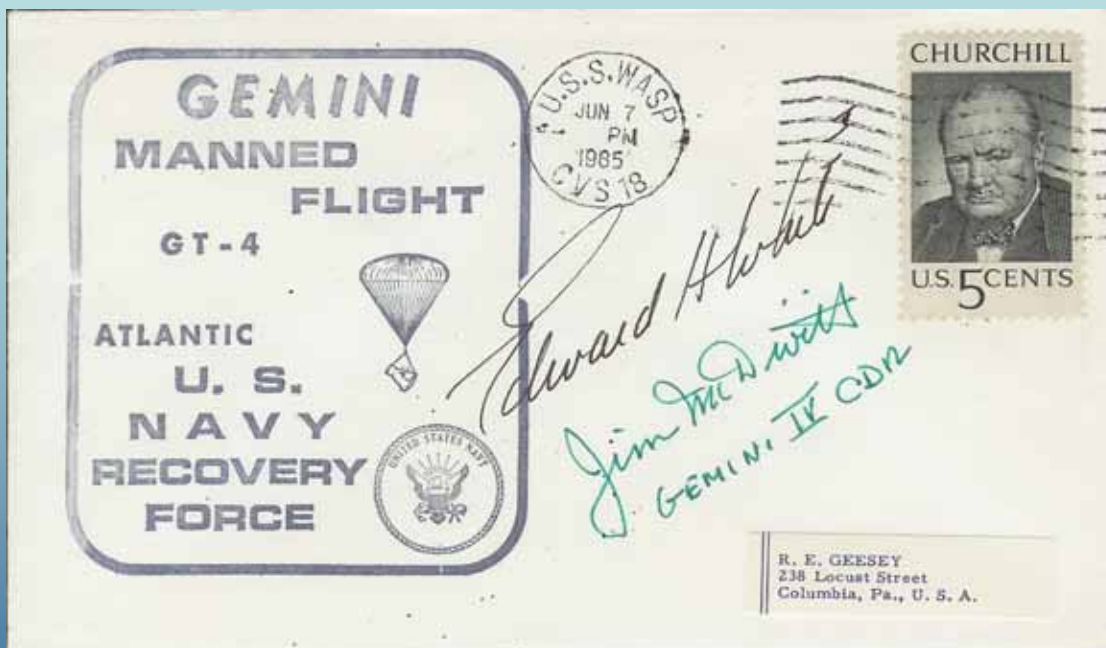 GEMINI
MANNED
FLIGHT
GT-4
ATLANTIC
U. S.
NAVY
RECOVERY
FORCE
UNITED STATES NAVY
U.S.S. WASP
JUN 7
PM
1965
CVS 18
CHURCHILL
U.S. 5 CENTS
Edward H White
Jim McDivitt
GEMINI IV CDR
R. E. GEESEY
238 Locust Street
Columbia, Pa., U. S. A.